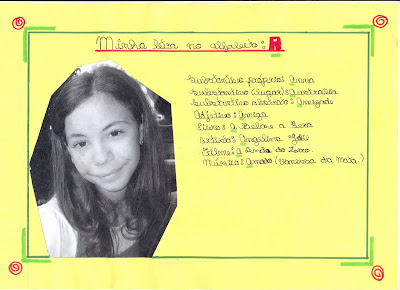 Minha letra no alfabeto: A
Substantivo próprio: Anna
Substantivo (lugar): Austrália
Substantivo abstrato: Amizade
Adjetivo: Amiga
Livro: A Bela e a Fera
Artista: Angelina Jolie
Filme: A Lenda do Zorro.
Música: Amado (Vanessa da Mata.)